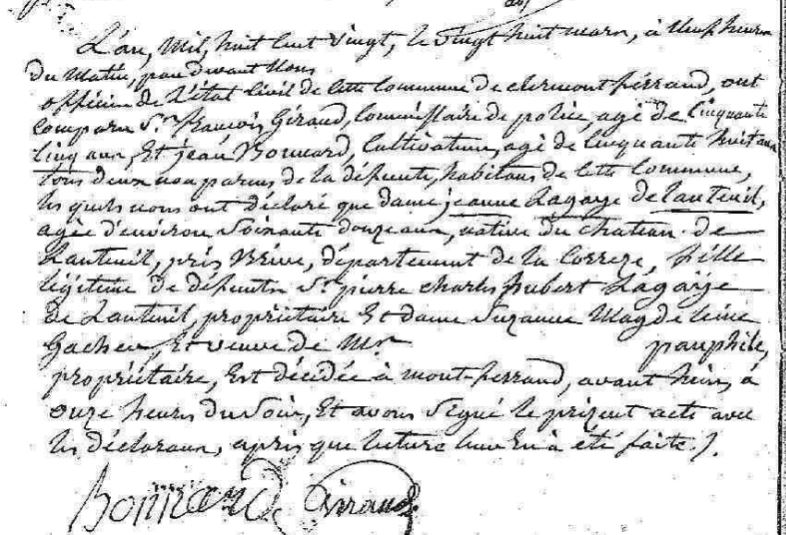 L'an, Mil, huit cent vingt, le vingt huit mars, à Neuf heures
Du Matin, pardevant Nous
officier de l'Etat Civil de cette Commune de clermont ferrand, ont
comparu Sr. francois Giraud, Commissaire de police, agé de Cinquante
Cinq ans, Et jean Bonnard, Cultivateur, agé de Cinquante huit ans
tous deux non parens de la défunte, habitans de cette Commune,
les quels nous ont déclaré que dame jeanne Lagarje de Lanteuil,
agée d'environ Soixante douze ans, native du chateau de
Lanteuil, près Brive, département de la Correze, fille
légitime de défunts Sr. pierre charles hubert Lagarje
de Lanteuil, propriétaire Et dame Suzanne Magdeleine
Et veuve de Mr. pauphile,
propriétaire, Est décédée à mont-ferrand, avant hier, à
onze heures du Soir, Et avons Signé le prézent acte avec
les déclarans, après que lecture leur En a été faite./.
Giraud